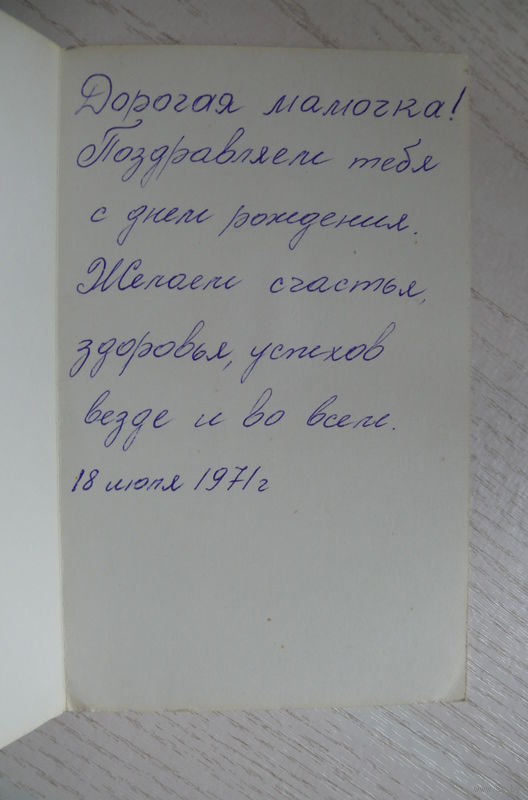 Дорогая мамочка!
Поздравляем тебя
с днем рождения.
Желаем счастья,
здоровья, успехов
везде и во всем.
18 июля 1971г